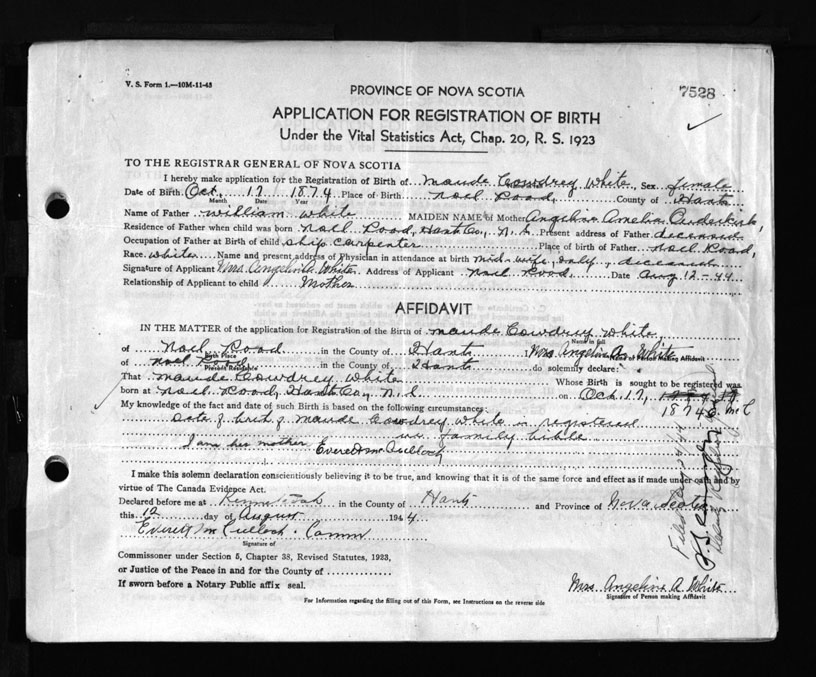 V. S. Form 1.—10M-11-43
PROVINCE OF NOVA SCOTIA
7528
APPLICATION FOR REGISTRATION OF BIRTH
Under the Vital Statistics Act, Chap. 20, R. S. 1923
TO THE REGISTRAR GENERAL OF NOVA SCOTIA
I hereby make application for the Registration of Birth of Maude Cowdrey White Sex Female
Date of Birth Oct. 17 1874 Place of Birth Noel Road, County of Hants
Month Date Year
Name of Father William White MAIDEN NAME of Mother Angelina Amelia
Residence of Father when child was born Noel Road, Hants Co., N. S. Present address of Father deceased
Occupation of Father at Birth of child ship carpenter Place of birth of Father Noel Road,
Race white Name and present address of Physician in attendance at birth mid-wife, only, deceased
Signature of Applicant Mrs Angelina A. White Address of Applicant Noel Road. Date Aug 12-44
Relationship of Applicant to child Mother
AFFIDAVIT
IN THE MATTER of the application for Registration of the Birth of Maude Cowdrey White
Name in full
of Noel Road in the County of Hants Mrs Angelina A. White
Birth Place Name of Person Making Affidavit
of Noel Road in the County of Hants do solemnly declare:
Present Residence
That Maude Cowdrey White Whose Birth is sought to be registered was
born at Noel Road, Hants Co., N. S. on Oct. 17,
1874
My knowledge of the fact and date of such Birth is based on the following circumstances:
Date of birth of Maude Cowdrey White is registered
in family bible
I am her mother Everett McCulloch
I make this solemn declaration conscientiously believing it to be true, and knowing that it is of the same force and effect as if made under oath and by
virtue of The Canada Evidence Act.
Declared before me at Kennetcook in the County of Hants and Province of Nova Scotia
this 12 day of August 1944
Everett McCulloch. Comm
Signature of
Commissioner under Section 5, Chapter 38, Revised Statutes, 1923,
or Justice of the Peace in and for the County of
If sworn before a Notary Public affix seal.
Mrs Angelina A. White
Signature of Person making Affidavit
For Information regarding the filling out of this Form, see Instructions on the reverse side